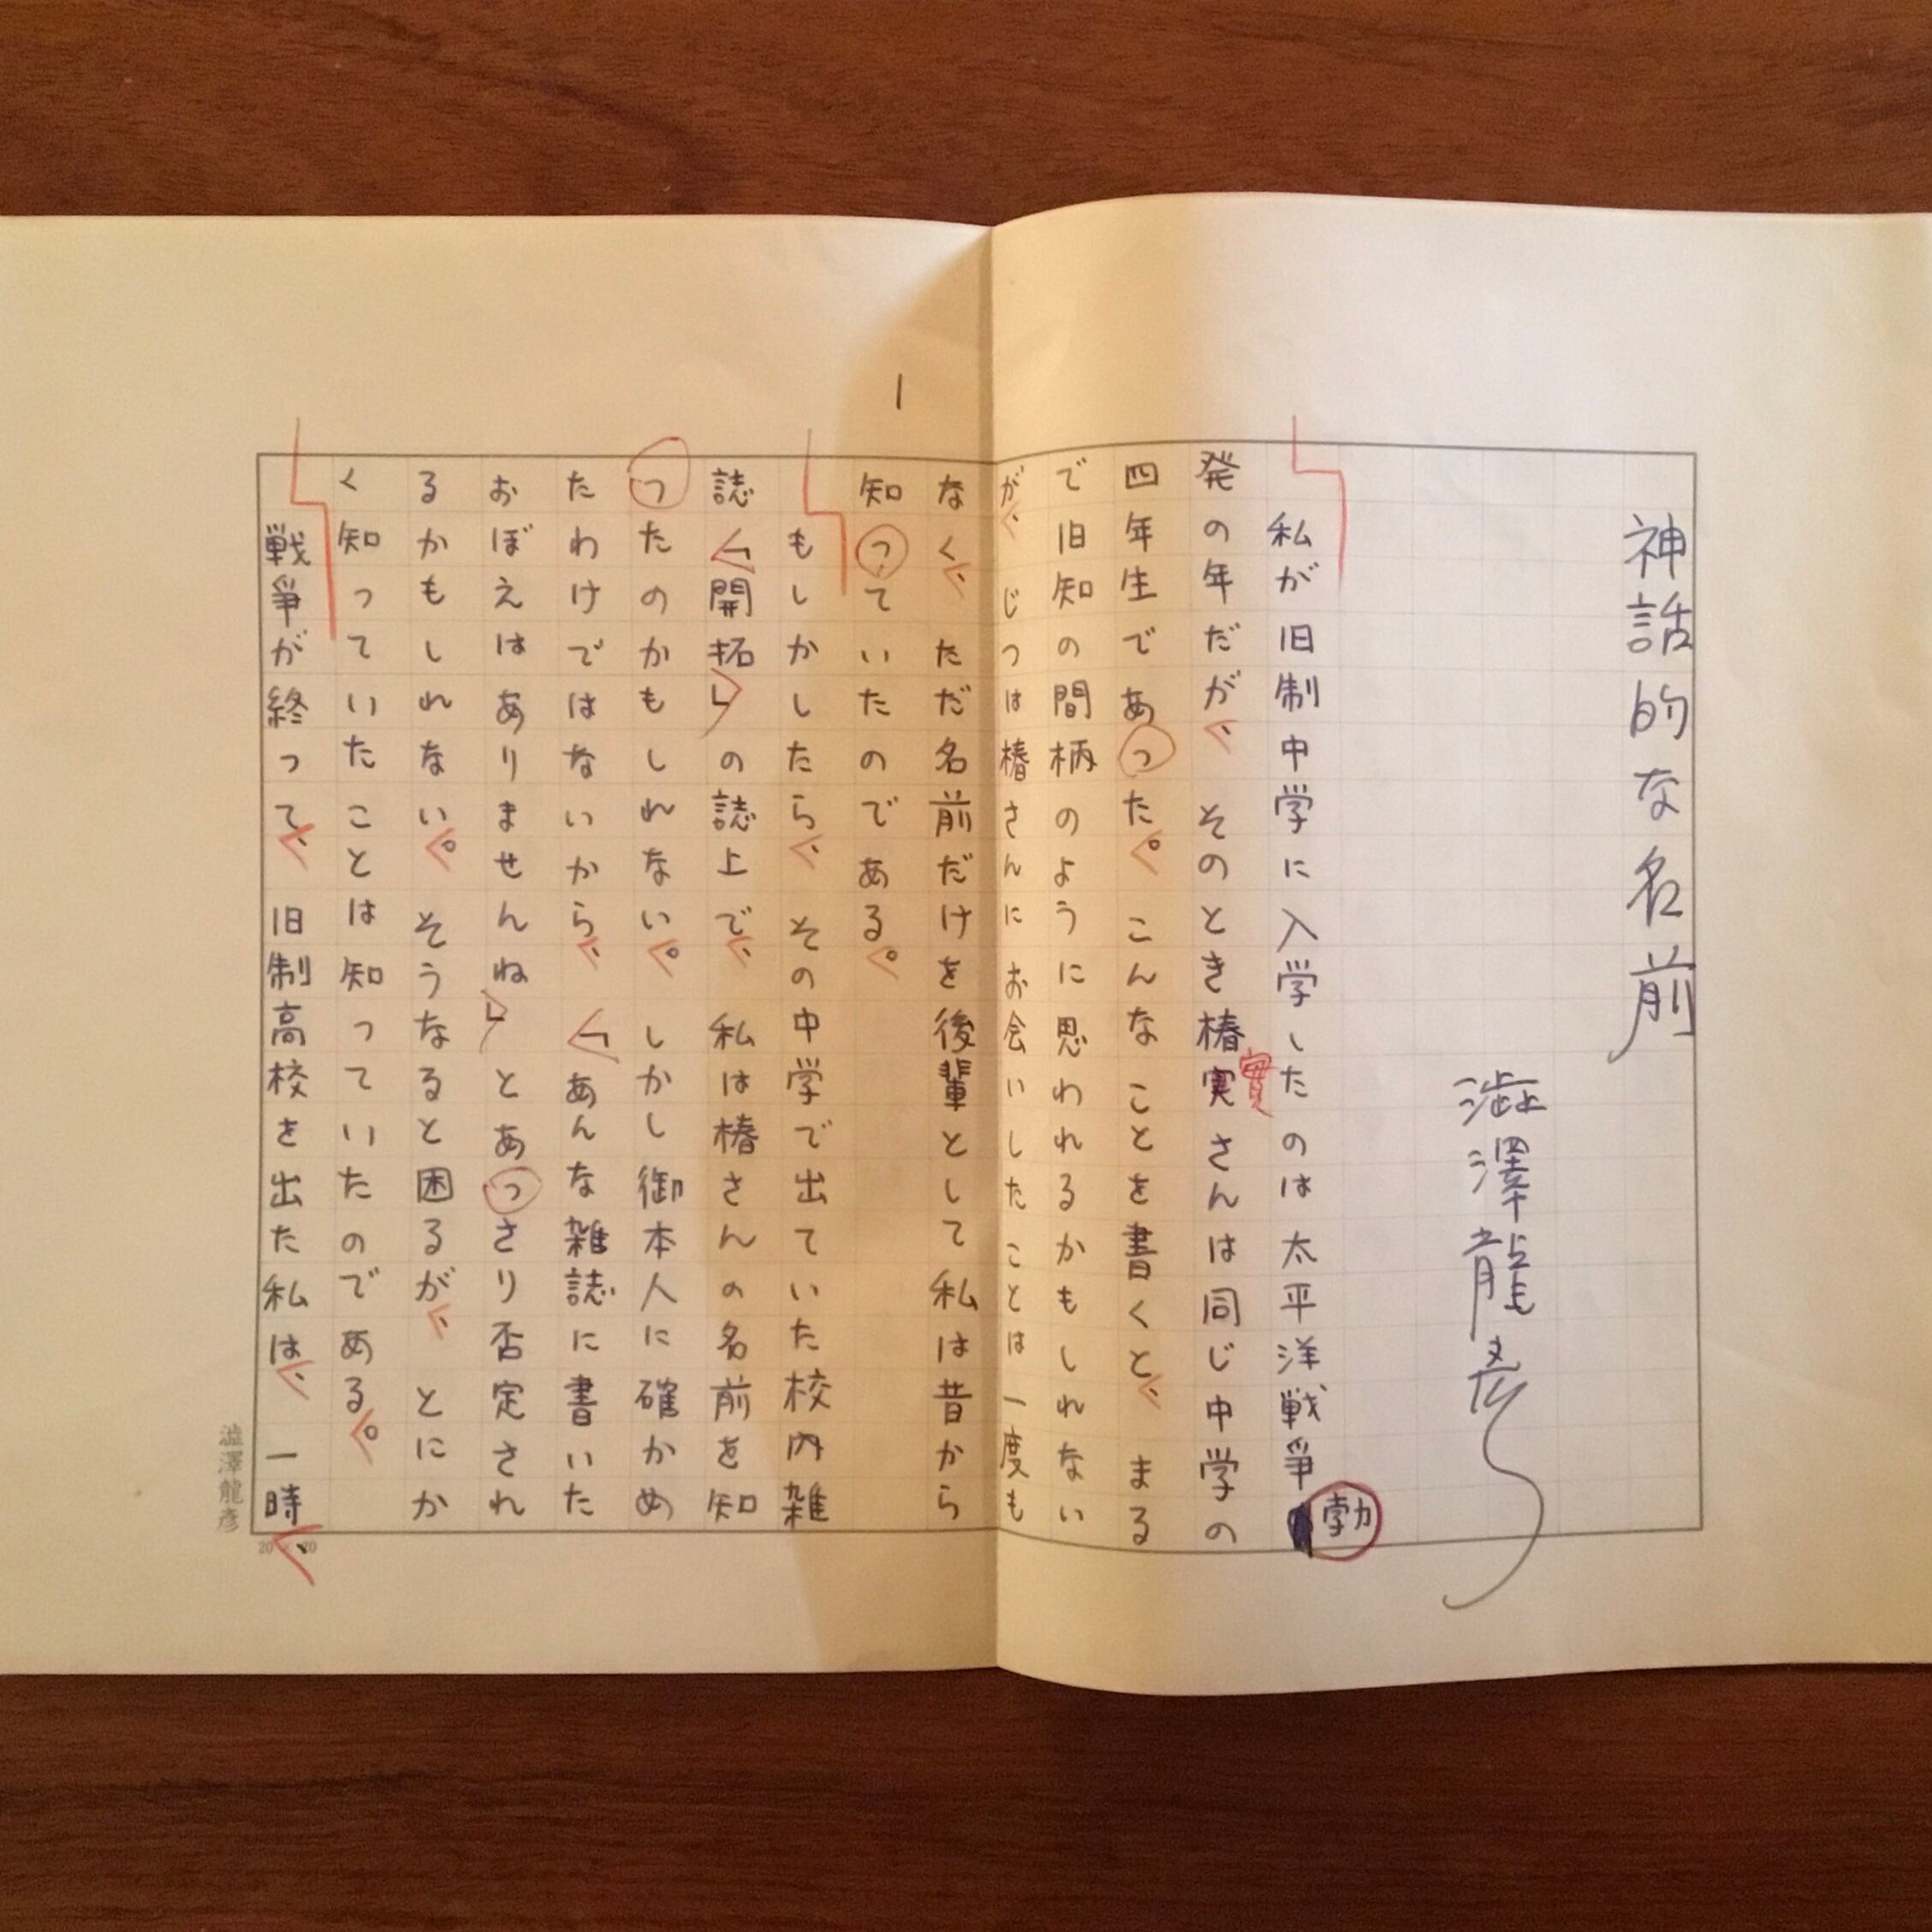 1
神話的な名前
澁澤龍彦
私が旧制中学に入学したのは太平洋戦争勃
発の年だが、そのとき椿実さんは同じ中学の
實
四年生であった。こんなことを書くと、まる
で旧知の間柄のように思われるかもしれない
が、じつは椿さんにお会いしたことは一度も
なく、ただ名前だけを後輩として私は昔から
知っていたのである。
もしかしたら、その中学で出ていた校内雑
誌「開拓」の誌上で、私は椿さんの名前を知
ったのかもしれない。しかし御本人に確かめ
たわけではないから、「あんな雑誌に書いた
おぼえはありませんね」とあっさり否定され
るかもしれない。そうなると困るが、とにか
く知っていたことは知っていたのである。
戦争が終って、旧制高校を出た私は、一時、
澁澤龍彦
20 20